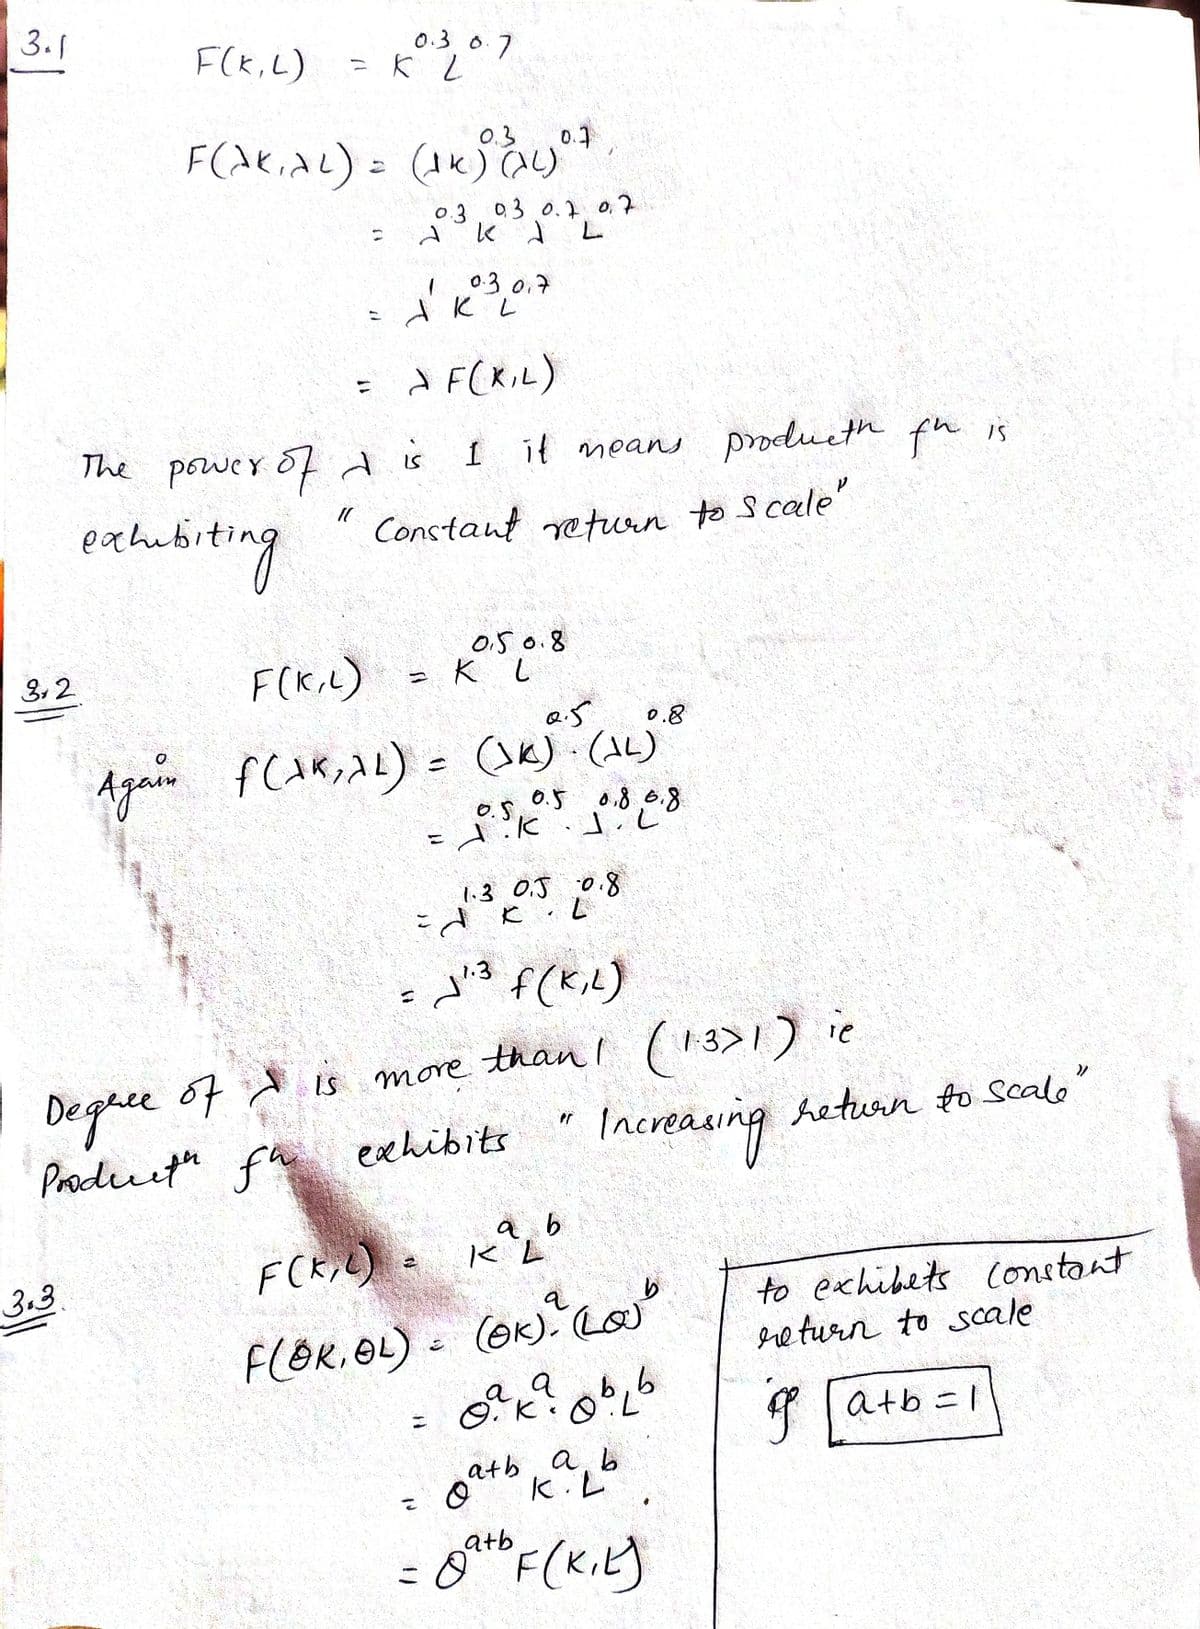 3.1
F(K,L) = K^0.3 L^0.7
F(λK,λL) = (λK)^0.3 (λL)^0.7
= λ^0.3 K^0.3 λ^0.7 L^0.7
= λ^1 K^0.3 L^0.7
= λ F(K,L)
The power of λ is 1 it means producth fn is
exhibiting " Constant return to Scale"
3.2 F(K,L) = K^0.5 L^0.8
Again f(λK,λL) = (λK)^0.5 . (λL)^0.8
= λ^0.5 . K^0.5 . λ^0.8 . L^0.8
= λ^1.3 K^0.5 . L^0.8
= λ^1.3 f(K,L)
Degree of λ is more than 1 (1.3>1) ie
Producth fn exhibits " Increasing return to Scale"
3.3 F(K,L) = K^a L^b
F(θK,θL) = (θK)^a . (Lθ)^b
= θ^a . K^a . θ^b . L^b
= θ^a+b K^a . L^b .
= θ^a+b F(K,L)
to exhibets constant
return to scale
if a+b=1